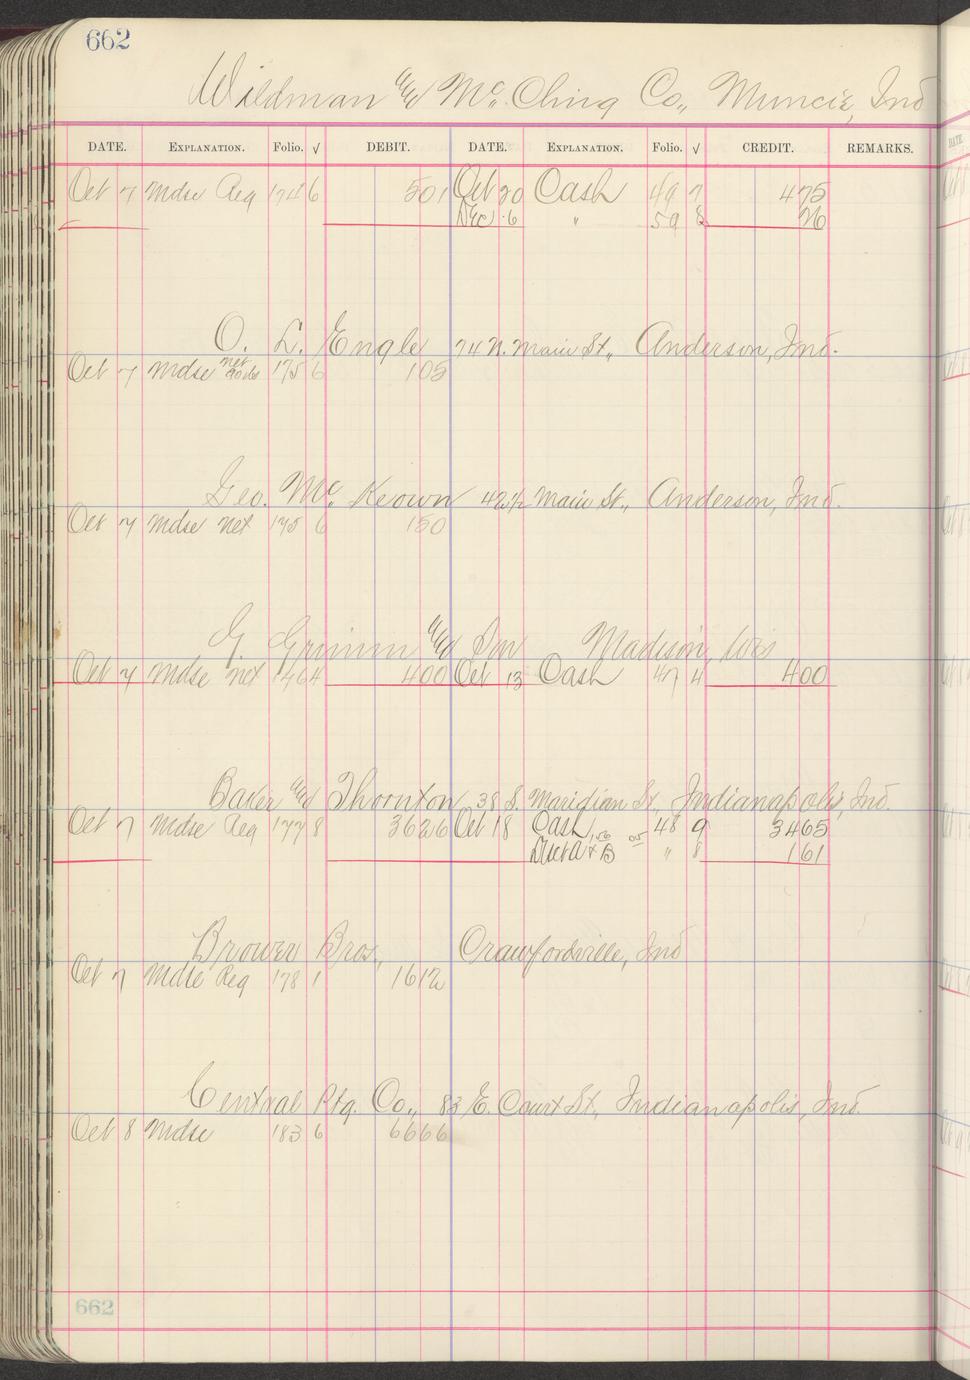 662
Wildman and Mc. Ching Co., Muncie, Ind
DATE. EXPLANATION. Folio. √ DEBIT. DATE. EXPLANATION. Folio. √ CREDIT. REMARKS.
Oct 7 Mdse Reg 174 6 501 Oct 20 Cash 49 7 475
Dec 6 " 59 8 26
O. L. Engle 74 N. Main St., Anderson, Ind.
Oct 7 Mdse net 175 6 105
Geo. Mc Keown 42 1/2 Main St., Anderson, Ind.
Oct 7 Mdse net 175 6 150
G. Grimm and Son Madison, Wis
Oct 7 Mdse net 146 4 400 Oct 13 Cash 47 4 400
Baker and Thornton 38 S. Maridian St., Indianapolis, Ind.
Oct 7 Mdse Reg 177 8 3626 Oct 18 Cash 48 9 3465
" 8 161
Brower Bros., Crawfordsville, Ind
Oct 7 Mdse Reg 178 1 1612
Central Ptg. Co., 83 E. Court St., Indianapolis, Ind.
Oct 8 Mdse 183 6 6666
662